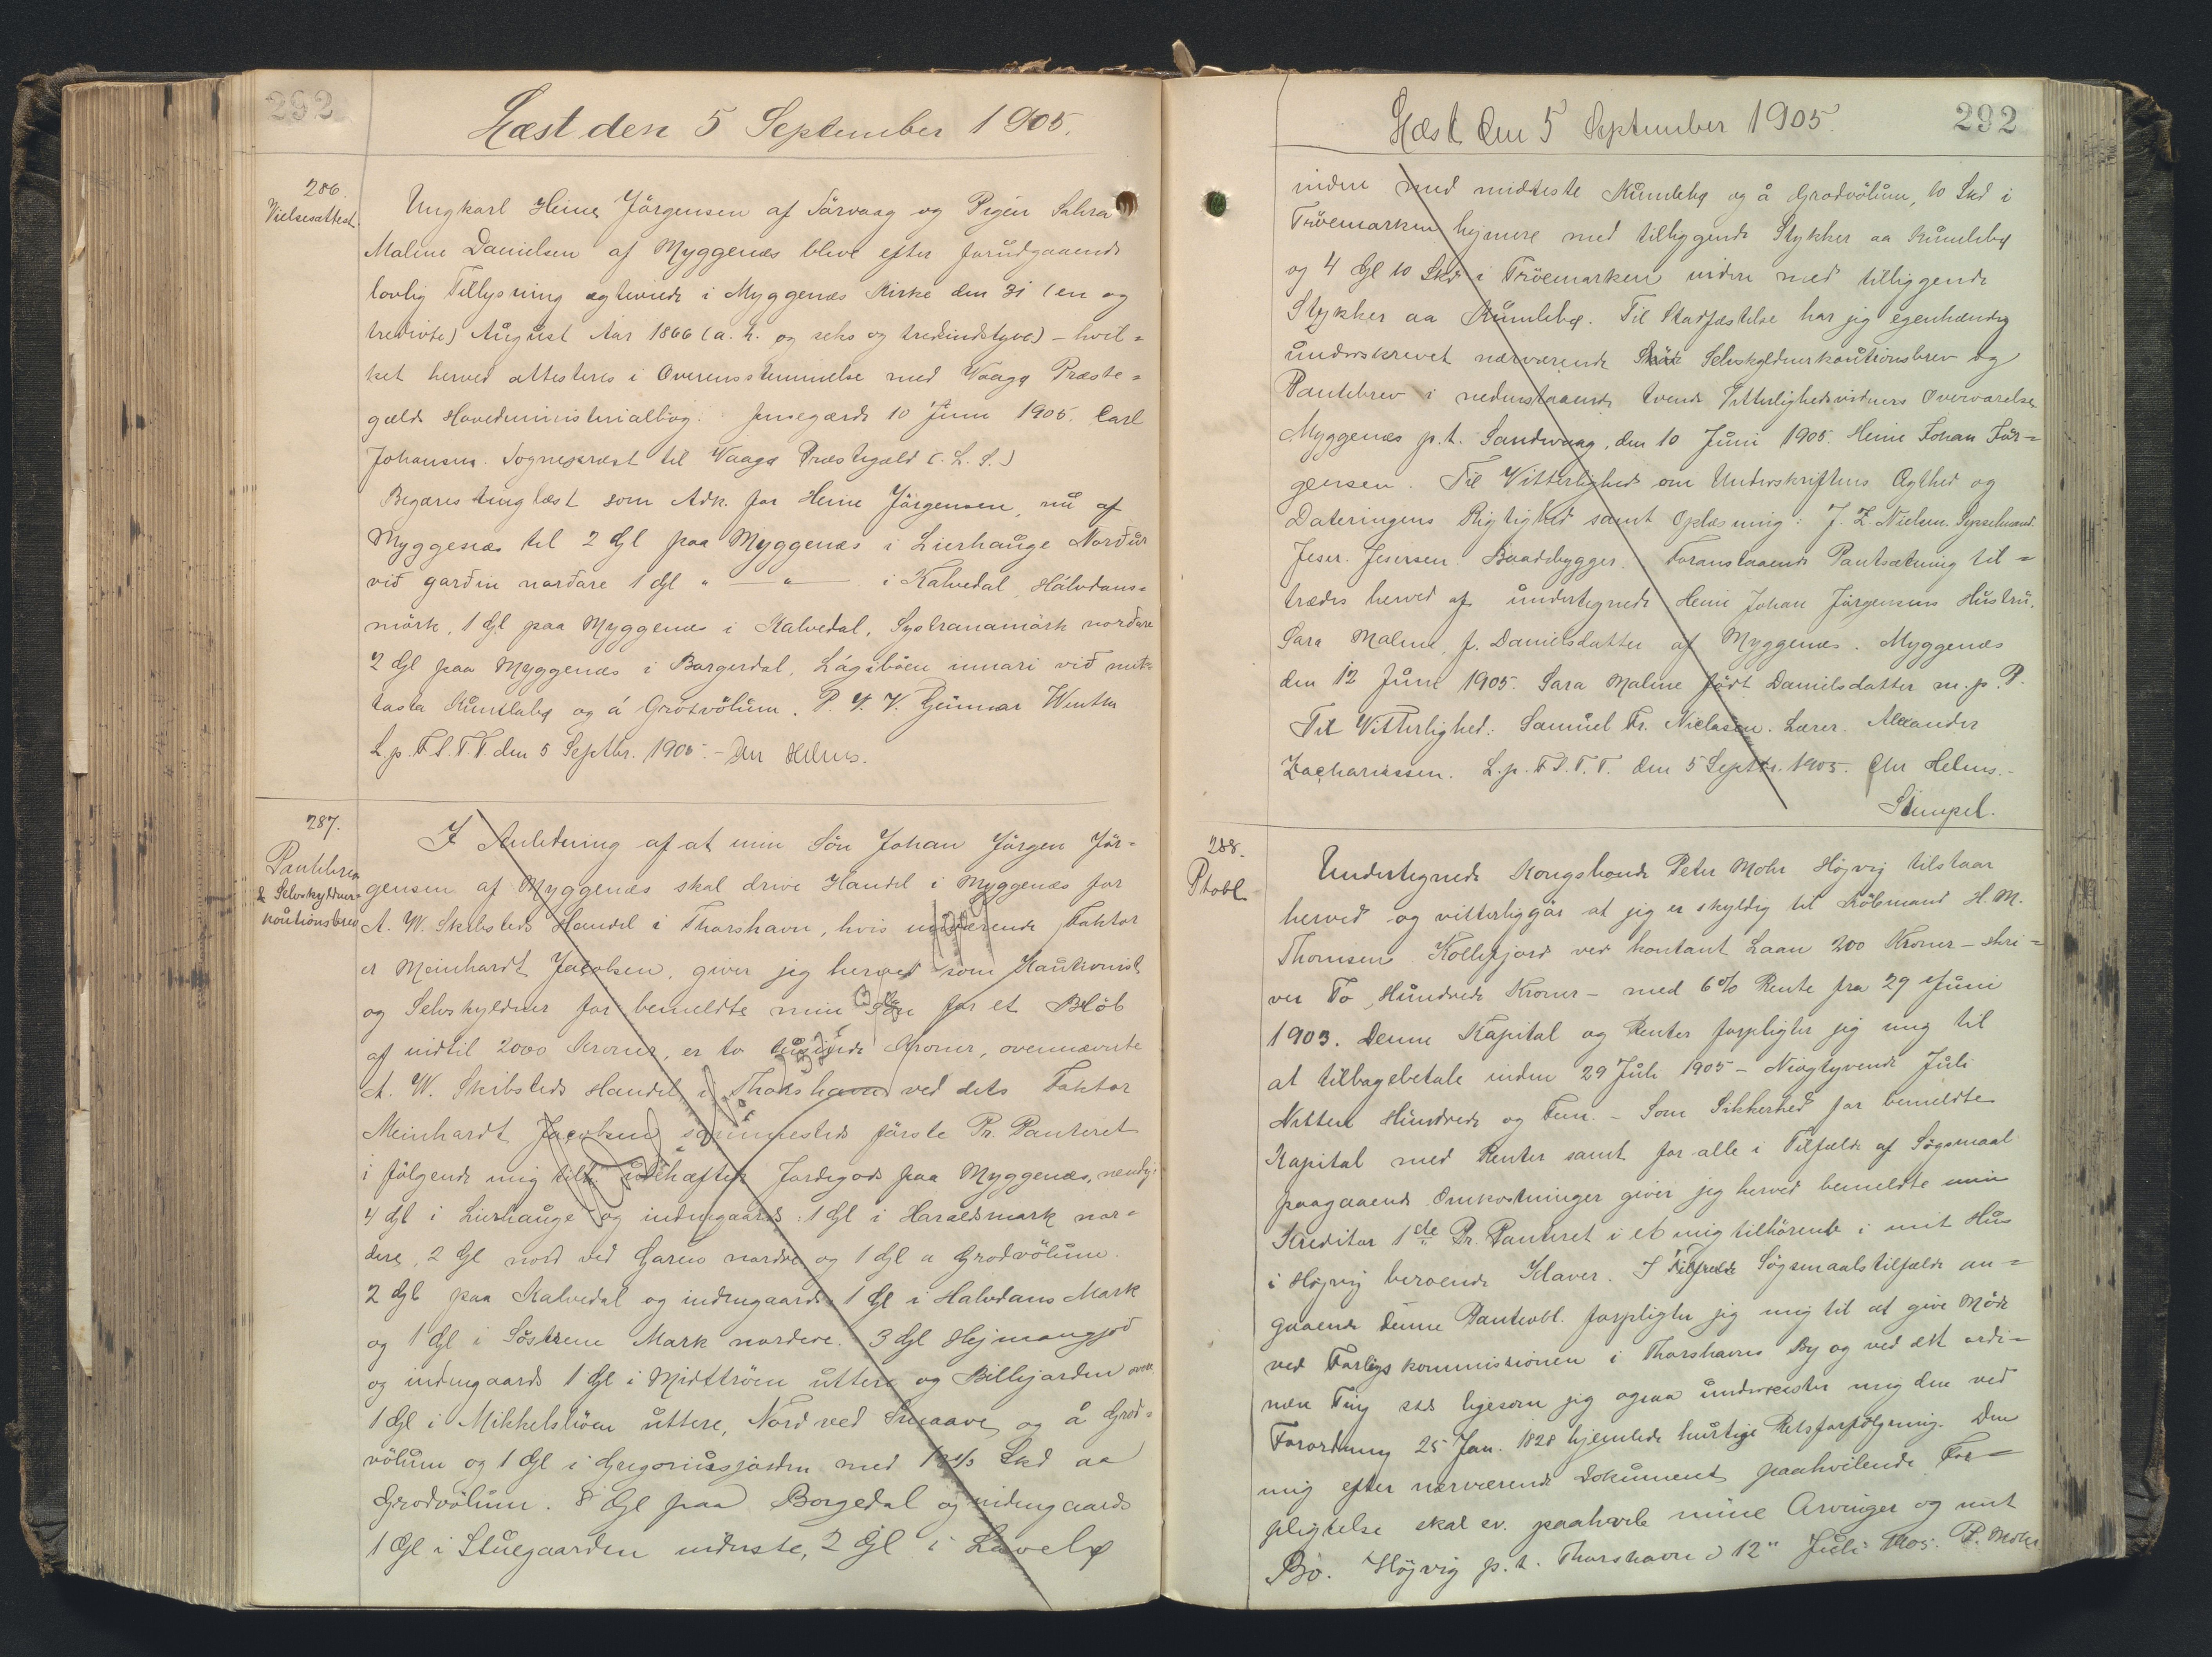 292
Læst den 5 September 1905.
286.
Vielsesattest.
Ungkarl Heine Jörgensen af Sörvaag og Pigen Sahra
Maline Danielsen af Myggenæs bleve efter forudgaaende
lovlig Tillysning ægteviede i Myggenæs Kirke den 31 (en og
tredivte) August Aar 1866 (a. h. og seks og tredsindstyve) - hvil-
ket herved attesteres i Overensstemmelse med Vaagø Præste-
gælds Hovedministerialbog. Jensegærde 10 Juni 1905. Carl
Johansen. Sognepræst til Vaagø Præstegæld (L. S.)
Begæres tinglæst som Adk. for Heine Jörgensen, nu af
Myggenæs til 2 Gl paa Myggenæs i Lierhauge Norður
við garðin norðare 1 Gl " — " — i Kalvedal, Hálvdans-
mörk, 1 Gl paa Myggenæs i Kalvedal, Systranamörk norðare
2 Gl paa Myggenæs i Borgerdal, Lágiböen innari við mit-
tasta Kumlabø og á Grótvölum. P. V. V. Gunnar Winther
L. p. F. S. T. T. den 5 Septbr. 1905 - Chr Helms.
287.
Pantebrev
& Selvskyldner-
kautionsbrev
I Anledning af at min Sön Johan Jörgen Jör-
gensen af Myggenæs skal drive Handel i Myggenæs for
A. W. Skibsteds Handel i Thorshavn, hvis nuværende Faktor
er Meinhardt Jacobsen, giver jeg herved som Kautionist
og Selvskyldner for bemeldte min Sön for et Belöb
af indtil 2000 Kroner, er to tusinde Kroner, ovennævnte
A. W. Skibsteds Handel i Thorshavn ved dets Faktor
Meinhardt Jacobsen sammesteds förste Pr. Panteret
i fölgende mig tilh. ubehæftet Jordegods paa Myggenæs, nemlig:
4 Gl i Lierhauge og indengaards: 1 Gl i Haraldsmark nor-
dere, 2 Gl nord ved Garen nordre og 1 Gl a Grodvölum.
2 Gl paa Kalvedal og indengaards 1 Gl i Halvdans Mark
og 1 Gl i Söstrene Mark nordere. 3 Gl Hejmangjod
og indengaards 1 Gl i Midttröen uttere og Billejorden
1 Gl i Mikkelstöen uttere, Nord ved Smaave og å Grod-
völum og 1 Gl i Gregoriusjorden med Skd aa
Grodvölum. 8 Gl paa Borgedal og indengaards
1 Gl i Stuegaarden inderste, 2 Gl i Lavebø
292
Læst den 5 September 1905.
indre med midteste Kumlebø og å Grodvölum, 10 Skd i
Tröemarken hejmere med tilliggende Stykker aa Kumlebø
og 4 Gl 10 Skd i Tröemarken indre med tilliggende
Stykker aa Kumlebø. Til Stadfæstelse har jeg egenhændig
underskrevet nærværende Selvskyldnerkautionsbrev og
Pantebrev i nedenstaaende tvende Vitterlighedsvidners Overværelse
Myggenæs p.t. Sandevaag, den 10 Juni 1905. Heine Johan Jör-
gensen. Til Vitterlighed om Underskriftens Ægthed og
Dateringens Rigtighed samt Oplæsning: J. Z. Nielsen. Sysselmand.
Jeser. Jesersen. Baadebygger. Foranstaaende Pantsætning til-
trædes herved af undertegnede Heine Johan Jörgensens Hustru,
Sara Maline, f. Danielsdatter af Myggenæs. Myggenæs
den 12 Juni 1905. Sara Maline född Danielsdatter m. p. P.
Til Vitterlighed: Samuel Fr. Nielasen. Lærer. Alexander
Zachariassen. L. p. F. S. T. T. den 5 Septbr. 1905. Chr Helms.-
Stempel.
288.
Ptobl
Undertegnede Kongsbonde Peter Mohr Höjvig tilstaar
herved og vitterliggör at jeg er skyldig til Köbmand H. M.
Thomsen Kollefjord ved kontant Laan 200 Kroner - skri-
ver To Hundrede Kroner - med 6% Rente fra 29 Juni
1903. Denne Kapital og Renter forpligter jeg mig til
at tilbagebetale inden 29 Juli 1905 - Niogtyvende Juli
Nitten Hundrede og Fem. - Som Sikkerhed for bemeldte
Kapital med Renter samt for alle i Tilfælde af Sögsmaal
paagaaende Omkostninger giver jeg herved bemeldte min
Kreditor 1ste Pr. Panteret i et mig tilhörende i mit Hus
i Höjvig beroende Klaver. I Tilfælde Sögsmaalstilfælde an-
gaaende denne Panteobl. forpligter jeg mig til at give Möde
ved Forligskommissionen i Thorshavns By og ved det ordi-
nære Ting sds ligesom jeg ogsaa underkaster mig den ved
Forordning 25 Jan. 1828 hjemlede hurtige Retsforfölgning. Den
mig efter nærværende Dokument paahvilende For-
pligtelse skal ev. paahvile mine Arvinger og mit
Bo. Höjvig p.t. Thorshavn d 12" Juli 1905. P. Mohr